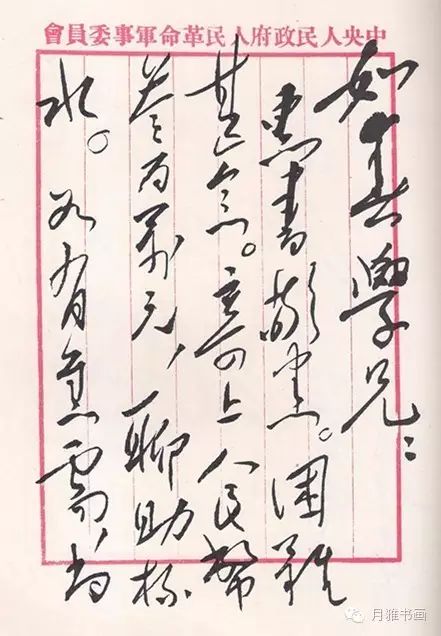 中央人民政府人民革命軍事委員會
如春學兄：
惠書敬悉。困難
甚念。寄上人民幣
叁百萬元，聊助杯
水。如有急需，尚
月雅书画